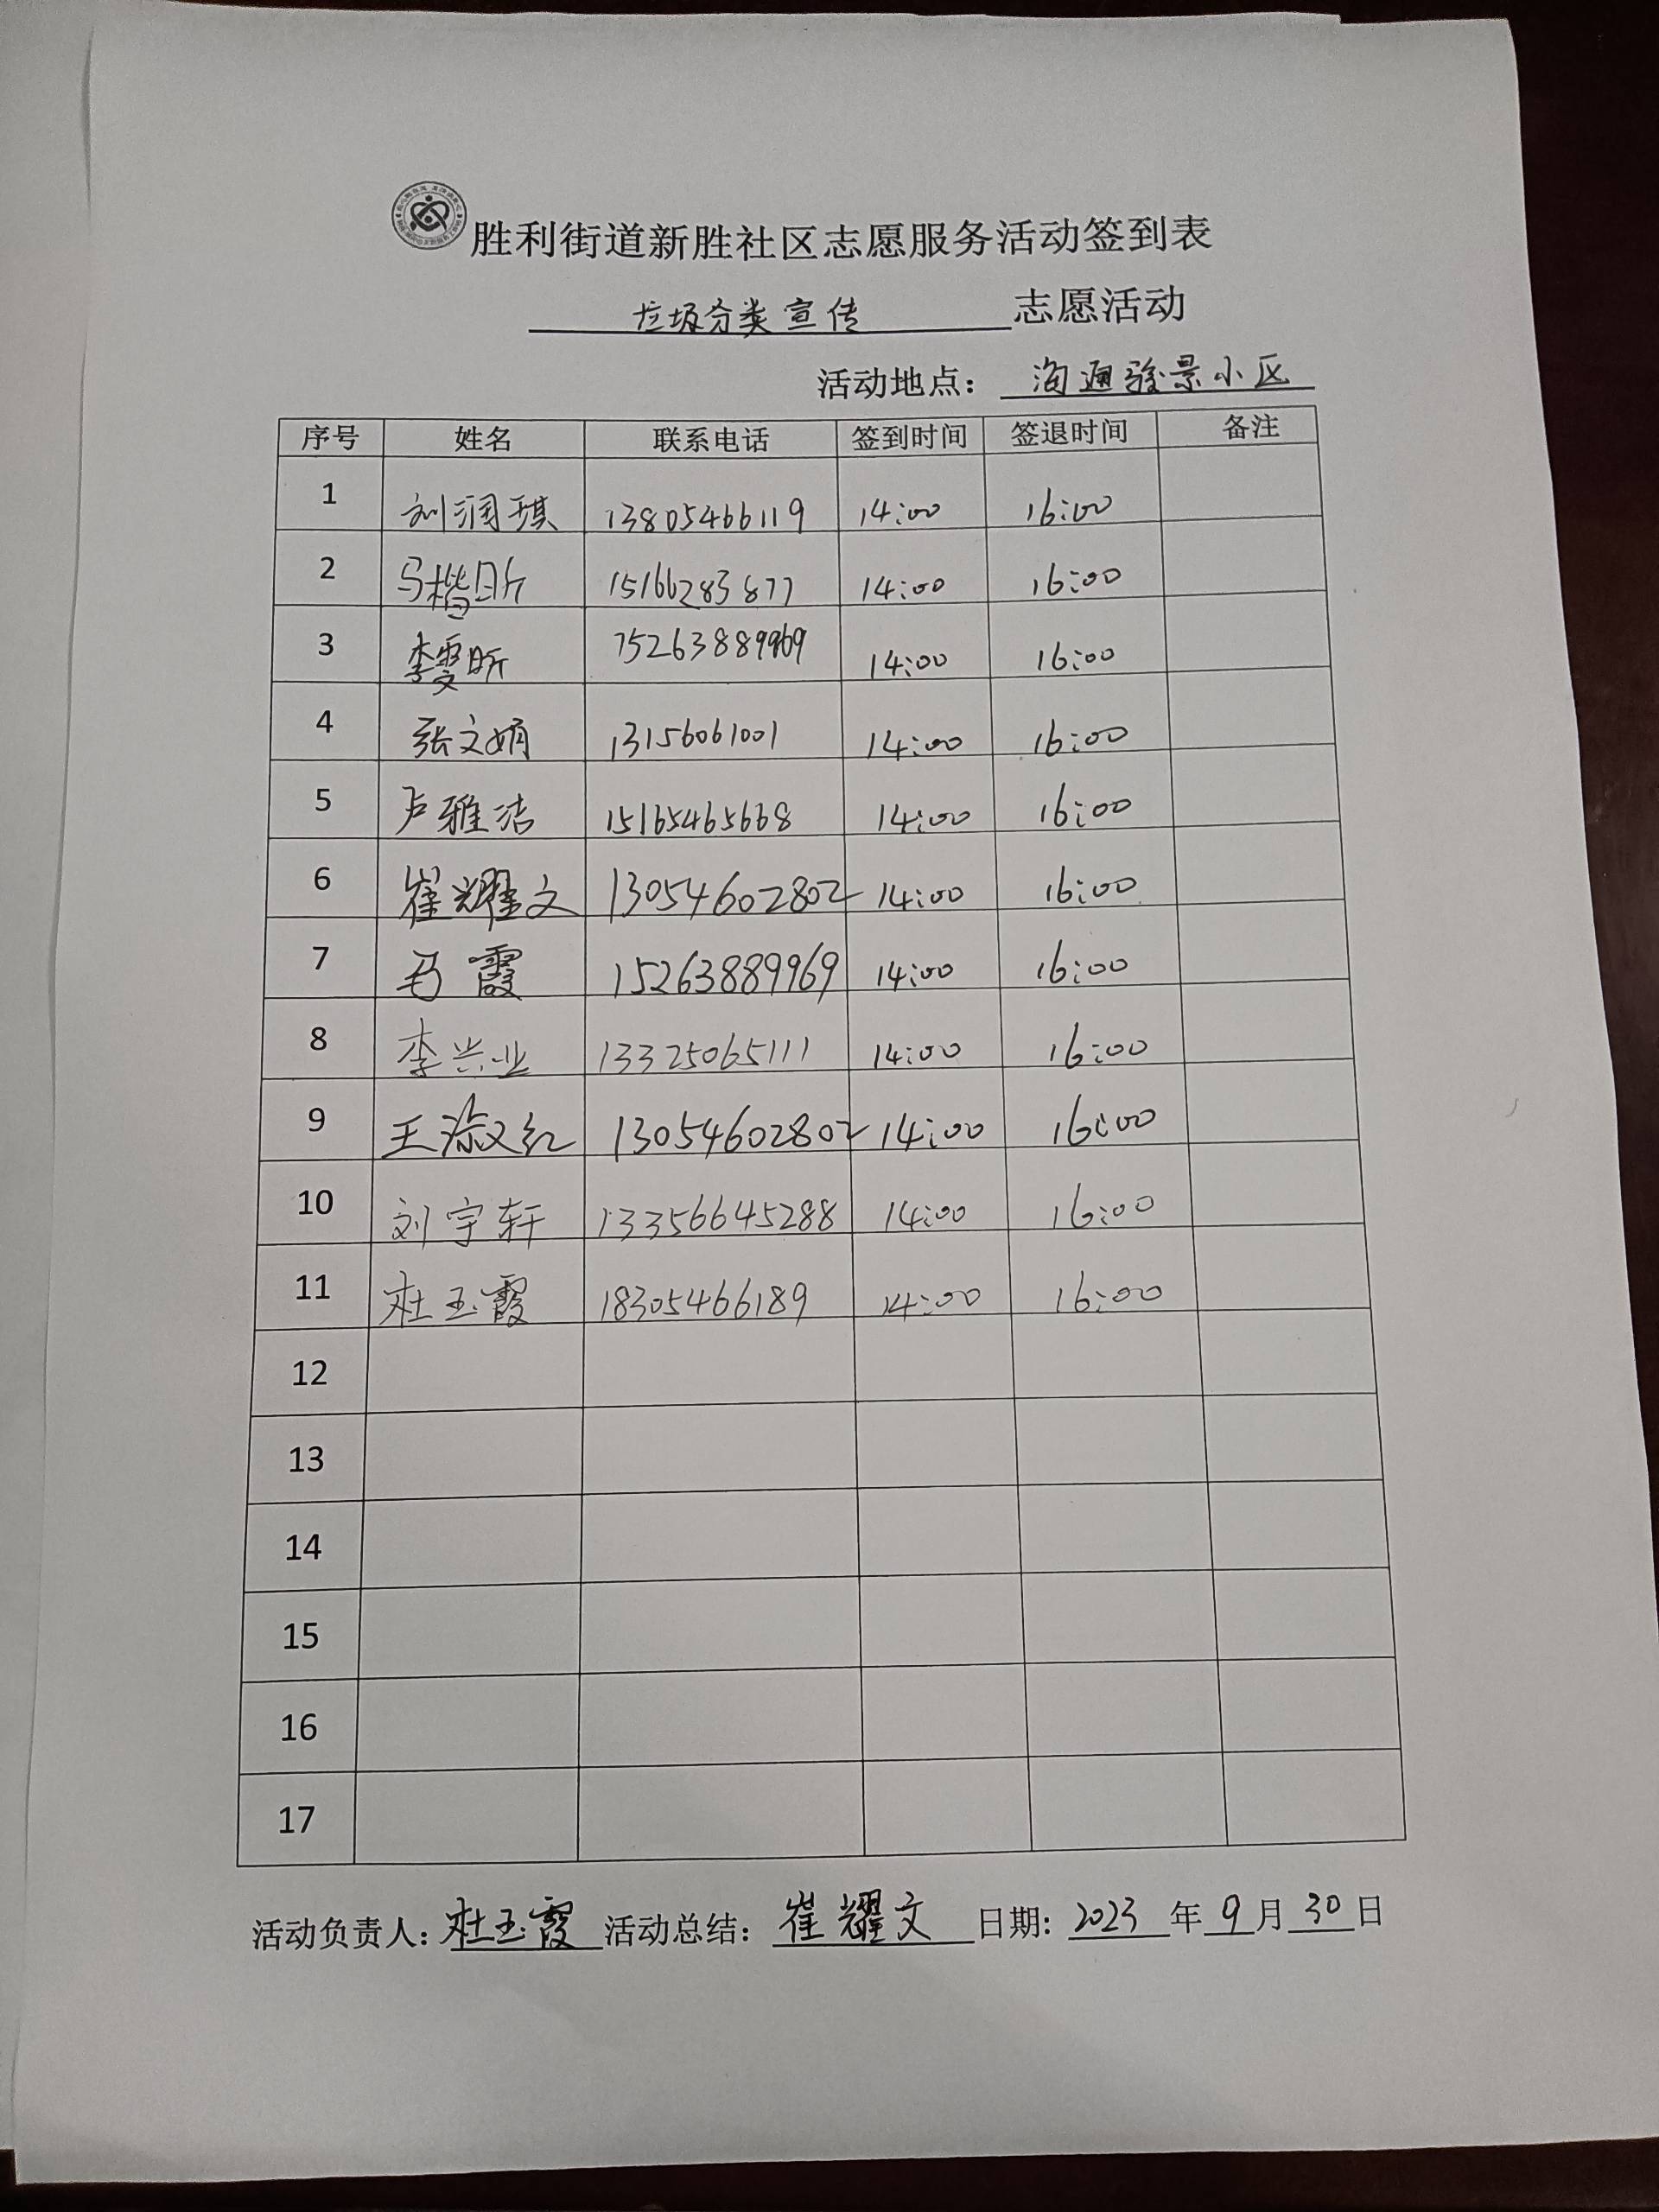 胜利街道新胜社区志愿服务活动签到表
垃圾分类宣传 志愿活动
活动地点： 海通骏景小区
序号 姓名 联系电话 签到时间 签退时间 备注
1 刘润琪 13805466119 14:00 16:00
2 马楷昕 15166283877 14:00 16:00
3 李雯昕 15263889969 14:00 16:00
4 张文娟 13156061001 14:00 16:00
5 卢雅洁 15165465668 14:00 16:00
6 崔耀文 13054602802 14:00 16:00
7 马霞 15263889969 14:00 16:00
8 李兴业 13325065111 14:00 16:00
9 王淑红 13054602802 14:00 16:00
10 刘宇轩 13356645288 14:00 16:00
11 杜玉霞 18305466189 14:00 16:00
12
13
14
15
16
17
活动负责人：杜玉霞 活动总结： 崔耀文 日期: 2023 年 9 月 30 日